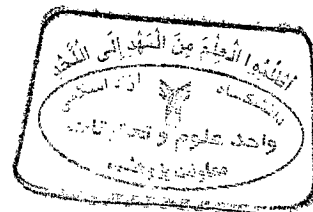 اُطْلُبُوا الْعِلْمَ مِنَ الْمَهْدِ إِلَى اللَّحْدِ
دانشگاه آزاد اسلامی
واحد علوم و تحقیقات
معاونت پژوهشی